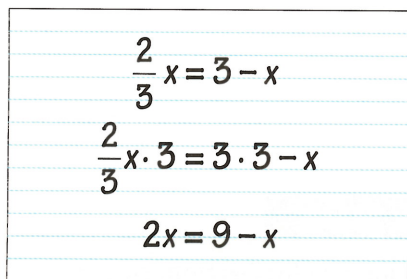 2/3 x = 3 − x
2/3 x · 3 = 3 · 3 − x
2x = 9 − x